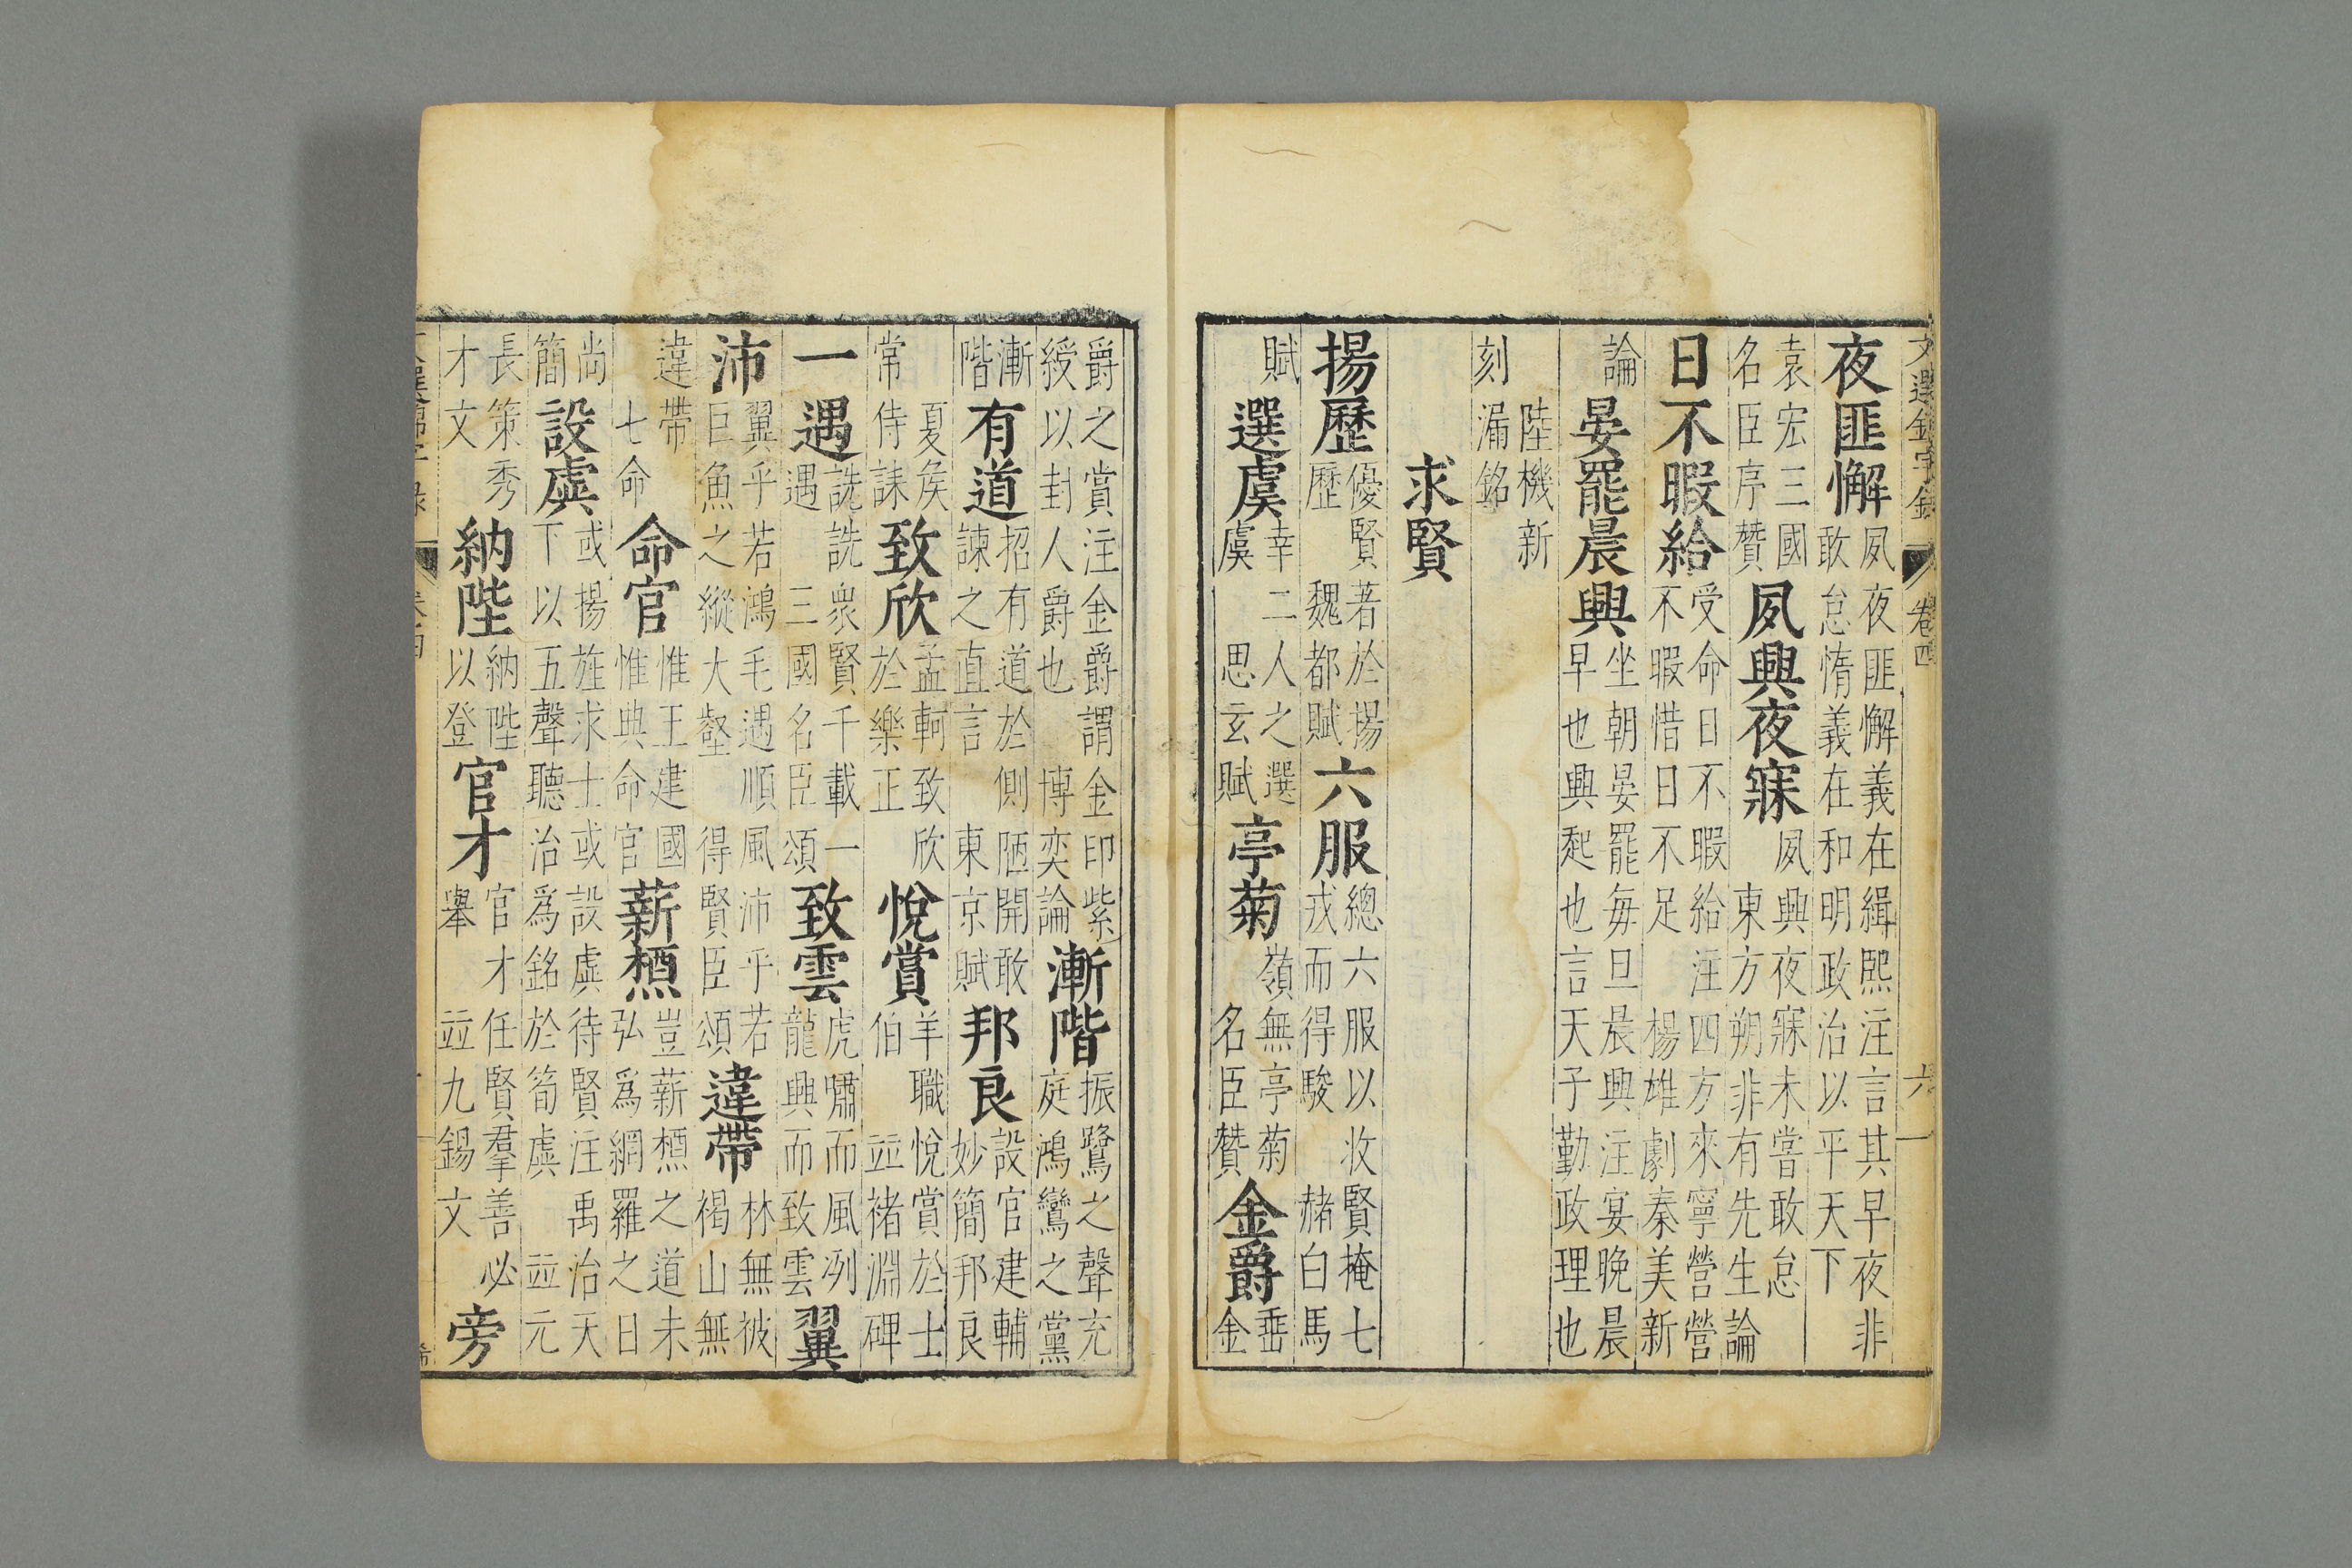 文選錦字錄 卷四 六
夜匪懈夙夜匪懈義在緝熙注言其早夜非敢怠惰義在和明政治以平天下
袁宏三國名臣序贊夙興夜寐夙興夜寐未嘗敢怠東方朔非有先生論
日不暇給受命日不暇給注四方來寧營營不暇惜日不足楊雄劇秦美新
論晏罷晨興坐朝晏罷每旦晨興注宴晚晨早也興起也言天子勤政理也
陸機新刻漏銘
求賢
揚歷優賢著於揚歷魏都賦六服總六服以收賢掩七戎而得駿赭白馬
賦選虞幸二人之選虞思玄賦亭菊嶺無亭菊名臣贊金爵垂金
爵之賞注金爵謂金印紫綬以封人爵也博奕論漸階振鷺之聲充庭鴻鸞之黨
漸階有道招有道於側陋開敢諫之直言東京賦邦良設官建輔妙簡邦良
夏侯常侍誄致欣孟軻致欣於樂正悅賞羊職悅賞於士伯竝褚淵碑
一遇詵詵衆賢千載一遇三國名臣頌致雲虎嘯而風冽龍興而致雲翼
沛翼乎若鴻毛遇順風沛乎若巨魚之縱大壑得賢臣頌違帶林無被褐山無
違帶七命命官惟王建國惟典命官薪槱豈薪槱之道未弘爲網羅之目
尚簡設虡或揚旌求士或設虡待賢注禹治天下以五聲聽治爲銘於筍虡竝元
長策秀才文納陛納陛以登官才官才任賢羣善必舉竝九錫文旁